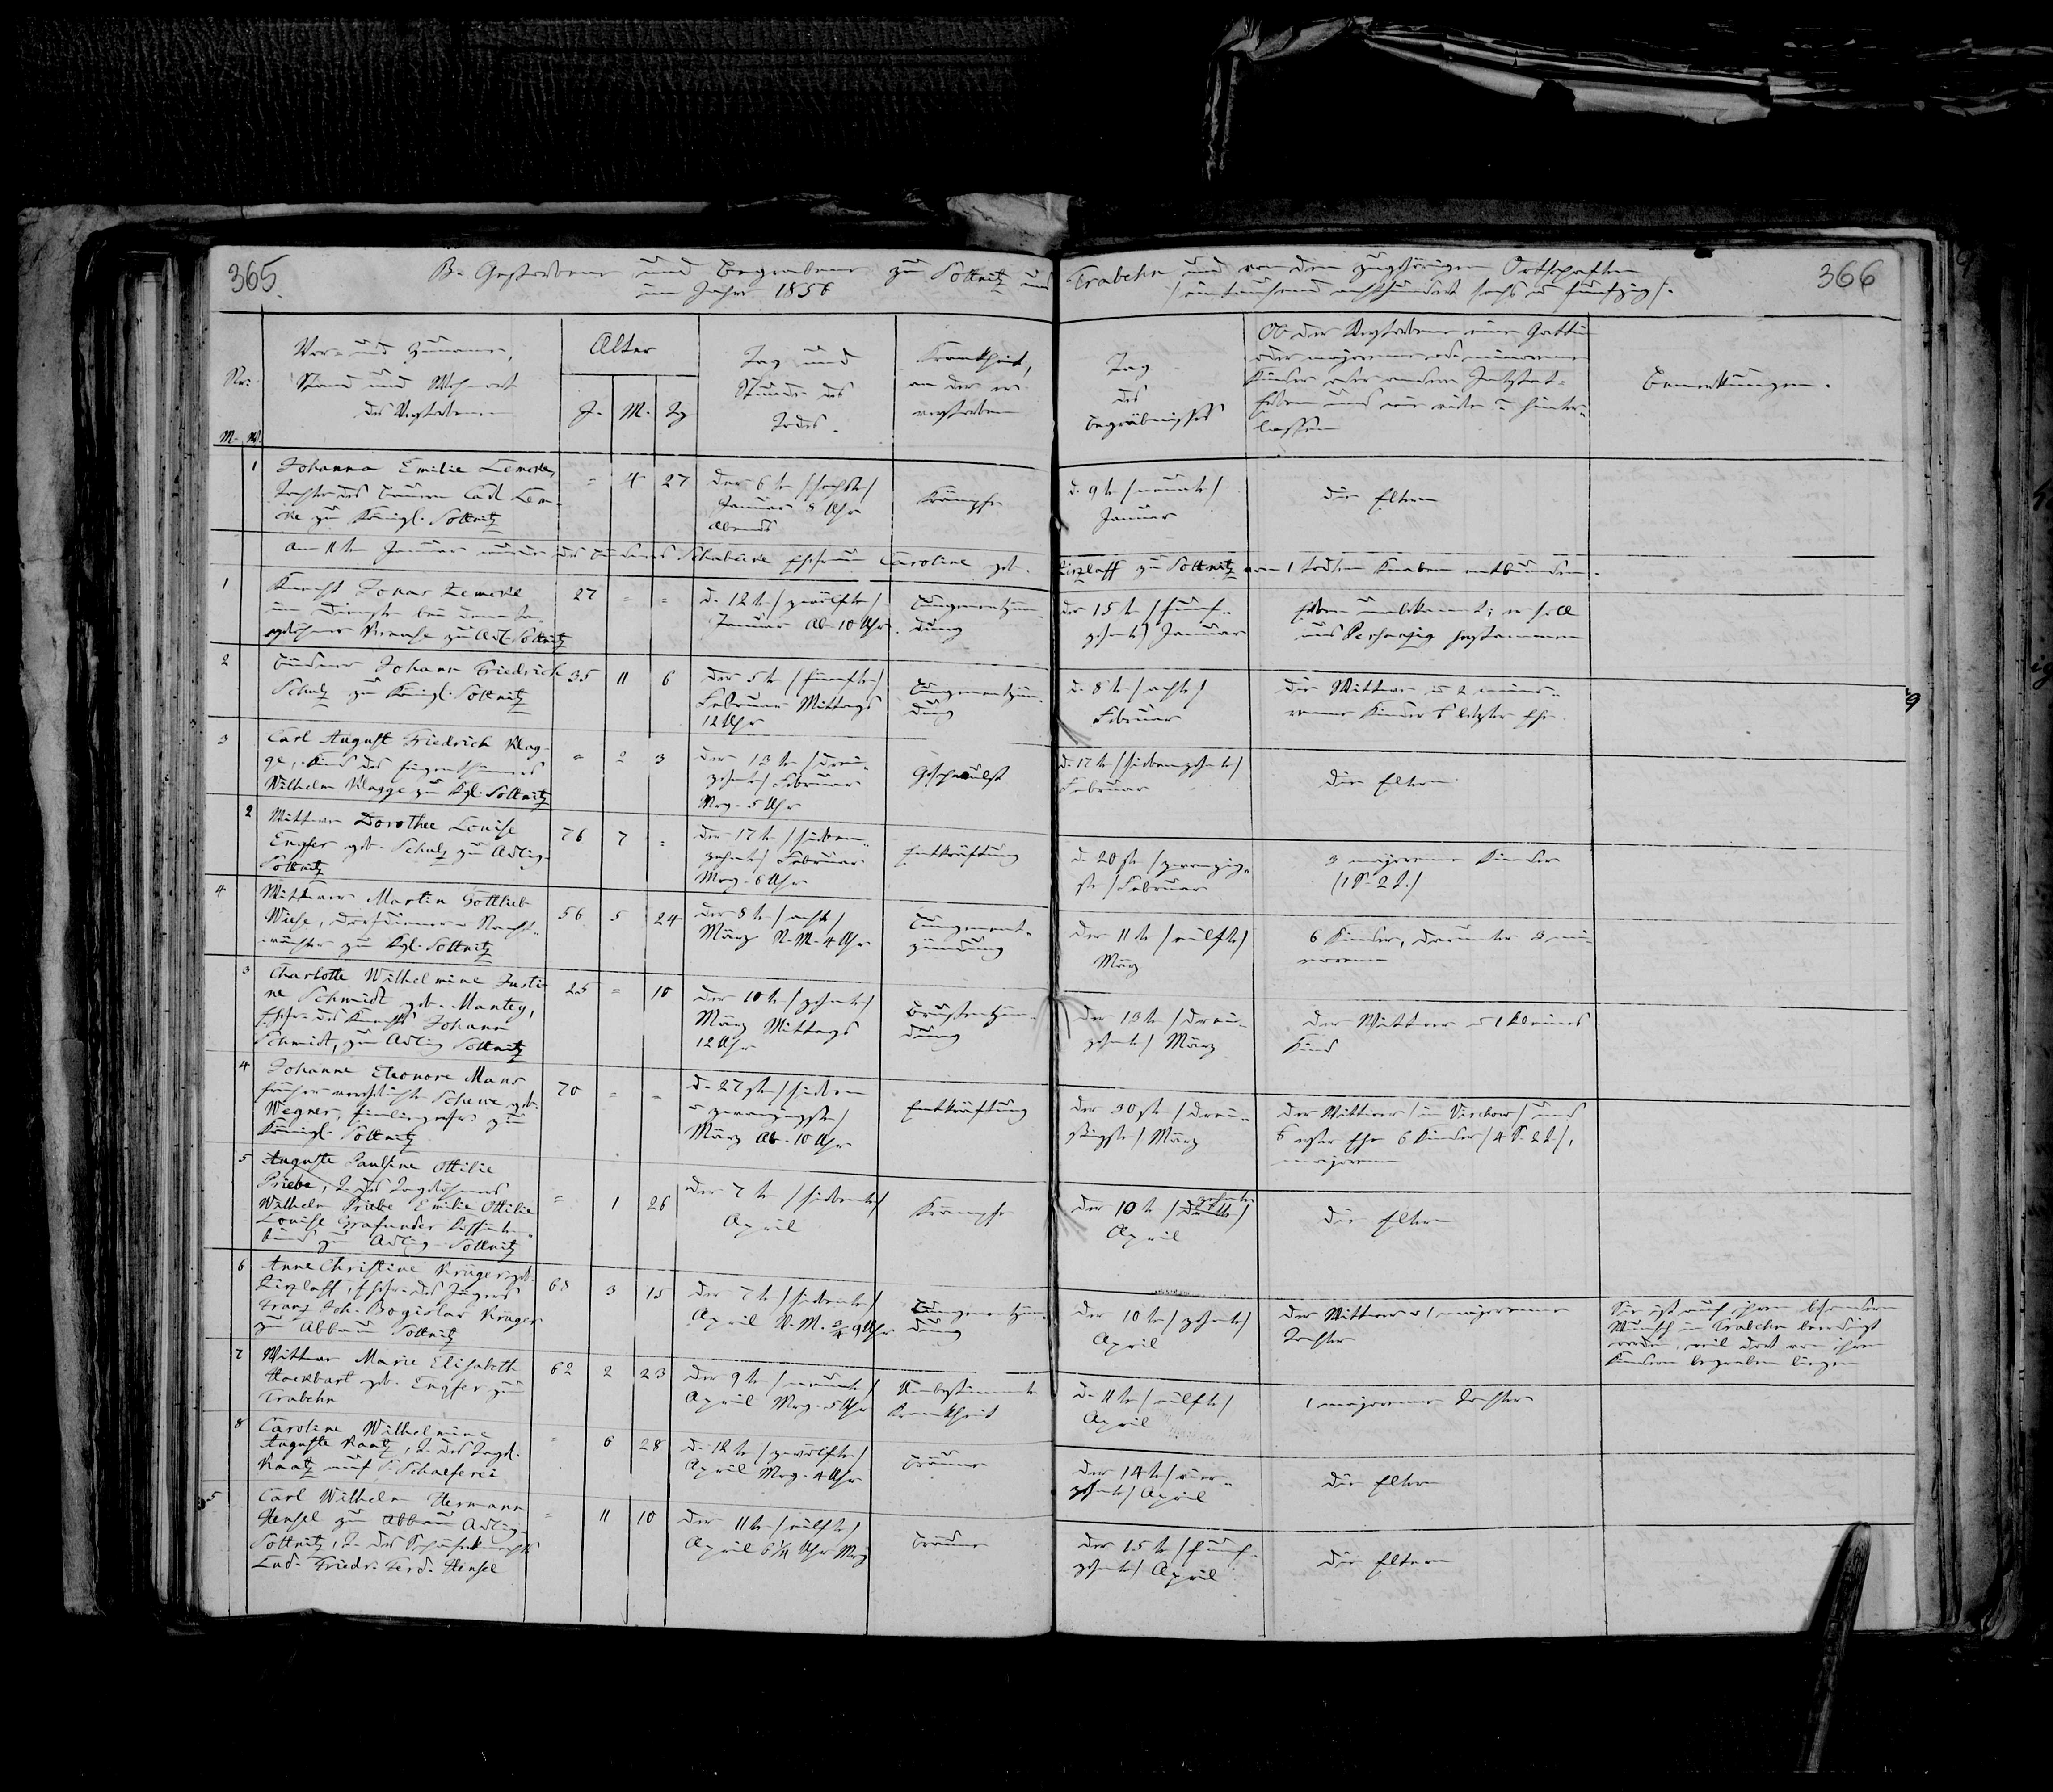 365.
B. Gestorbene und Begrabene zu Sottnitz und Trabehn und von den zugehörigen Ortschaften
im Jahre 1856 / eintausend achthundert sechs u fünfzig /.
366
Nr.
M. W.
Vor- und Zuname,
Stand und Wohnort
des Verstorbenen
Alter
J. M. Tg
Tag und
Stunde des
Todes.
Krankheit,
an der er
verstorben
Tag
des
Begräbnisses
Ob der Verstorbene eine Gattin
oder majorenne oder minorenne
Kinder oder andere
Erben und wie viele er hinter-
lassen
Bemerkungen.
1
Johanna Emilie Lemcke,
Tochter des Bauern Carl Lem-
cke zu Königl. Sottnitz
= 4 27
Den 6te /sechste/
Januar 8 Uhr
Abends
Krämpfe
d. 9te /neunte/
Januar
Die Eltern
Am 11ten Januar wurde des Büdners Schabeike Ehefrau Caroline geb. Zizlaff zu Sottnitz von 1 todten Knaben entbunden.
1
Knecht Jonas Lemcke
im Dienste bei dem Ta-
gelöhner zu Adl. Sottnitz
27 = =
d. 12te /zwölfte/
Januar Ab. 10 Uhr.
Lungenentzün-
dung
der 15te /funf-
zehnte/ Januar
Erben unbekannt; er soll
aus Persanzig herstammen
2
Büdner Johann Friedrich
Schulz zu Königl. Sottnitz
35 11 6
Der 5te /fünfte/
Februar Mittags
12 Uhr
Lungenentzün-
dung
d. 8te /achte/
Februar
Die Wittwe u 2 mino-
renne Kinder letzter Ehe.
3
Carl August Friedrich Klag-
ge, Kind des Eigenthümers
Wilhelm Klagge zu Kgl. Sottnitz
= 2 3
Der 13te /drei-
zehnte/ Februar
Mrg. 5 Uhr
Geschwulst
d. 17te /siebenzehnte/
Februar
Die Eltern
2
Wittwe Dorothee Louise
Engfer geb. Schulz zu Adlig-
Sottnitz
76 7 =
Der 17te /sieben-
zehnte/ Februar
Mrg. 6 Uhr
Entkräftung
d. 20ste /zwanzig-
ste/ Februar
3 majorenne Kinder
(1 S. 2 T.)
4
Wittwer Martin Gottlieb
Wiese, Dorfdiener u Nacht-
wächter zu Kgl. Sottnitz
56 5 24
der 8te /achte/
März N.M. 4 Uhr
Lungenent-
zündung
Der 11te /eilfte/
März
6 Kinder, darunter 3 mi-
norenne
3
Charlotte Wilhelmine Justi-
ne Schmidt geb. Mantey,
Ehefr. des Knechts Johann
Schmidt, zu Adlig Sottnitz
25 = 10
Der 10te /zehnte/
März Mittags
12 Uhr
Brustentzün-
dung
Der 13te /drei-
zehnte/ März
Der Wittwer u 1 kleines
Kind
4
Johanne Eleonore Mans
früher verehelichte Schewe geb.
Wegner, zu
Königl. Sottnitz
70 = =
d. 27ste /sieben
u zwanzigste/
März Ab. 10 Uhr
Entkräftung
Der 30ste /drei-
ßigste/ März
Der Wittwer /in Virchow/ und
erster Ehe 6 Kinder /4 S. 2 T./,
majorenn
5
Auguste Pauline Ottilie
Priebe, T. des Tagelöhners
Wilhelm Priebe Emilie Ottilie
Louise Grafunder
zu Adlig-Sottnitz
= 1 26
Der 7te /siebente/
April
Krämpfe
Der 10te / zehnte /
April
Die Eltern
6
Anne Christine Krüger geb.
Zizlaff, Ehefr. des Jägers
Franz Joh. Bogislav Krüger
zu Abbau Sottnitz
68 3 15
Der 7te /siebente/
April V.M. 3/4 9 Uhr
Lungenentzün-
dung
Der 10te /zehnte/
April
Der Wittwer u 1 majorenne
Tochter
Sie ist auf ihren besondern
Wunsch in Trabehn beerdigt
worden, weil dort von ihren
Kindern begraben liegen
7
Wittwe Marie Elisabeth
Hackbart geb. Engfer zu
Trabehn
62 2 23
Der 9te /neunte/
April Mrg. 5 Uhr
Unbestimmte
Krankheit
d. 11te /eilfte/
April
1 majorenne Tochter
8
Caroline Wilhelmine
Auguste Raatz, T. des Tagel.
Raatz auf S. Schäferei
= 6 28
d. 12te /zwölfte/
April Mrg. 4 Uhr
Bräune
Der 14te /vier-
zehnte/ April
Die Eltern
5
Carl Wilhelm Hermann
Hensel zu Abbau Adlig-
Sottnitz, S. des
Lud. Friedr. Ferd. Hensel
= 11 10
Der 11te /eilfte/
April 6 1/4 Uhr Mrg
Bräune
Der 15te /funf-
zehnte/ April
Die Eltern